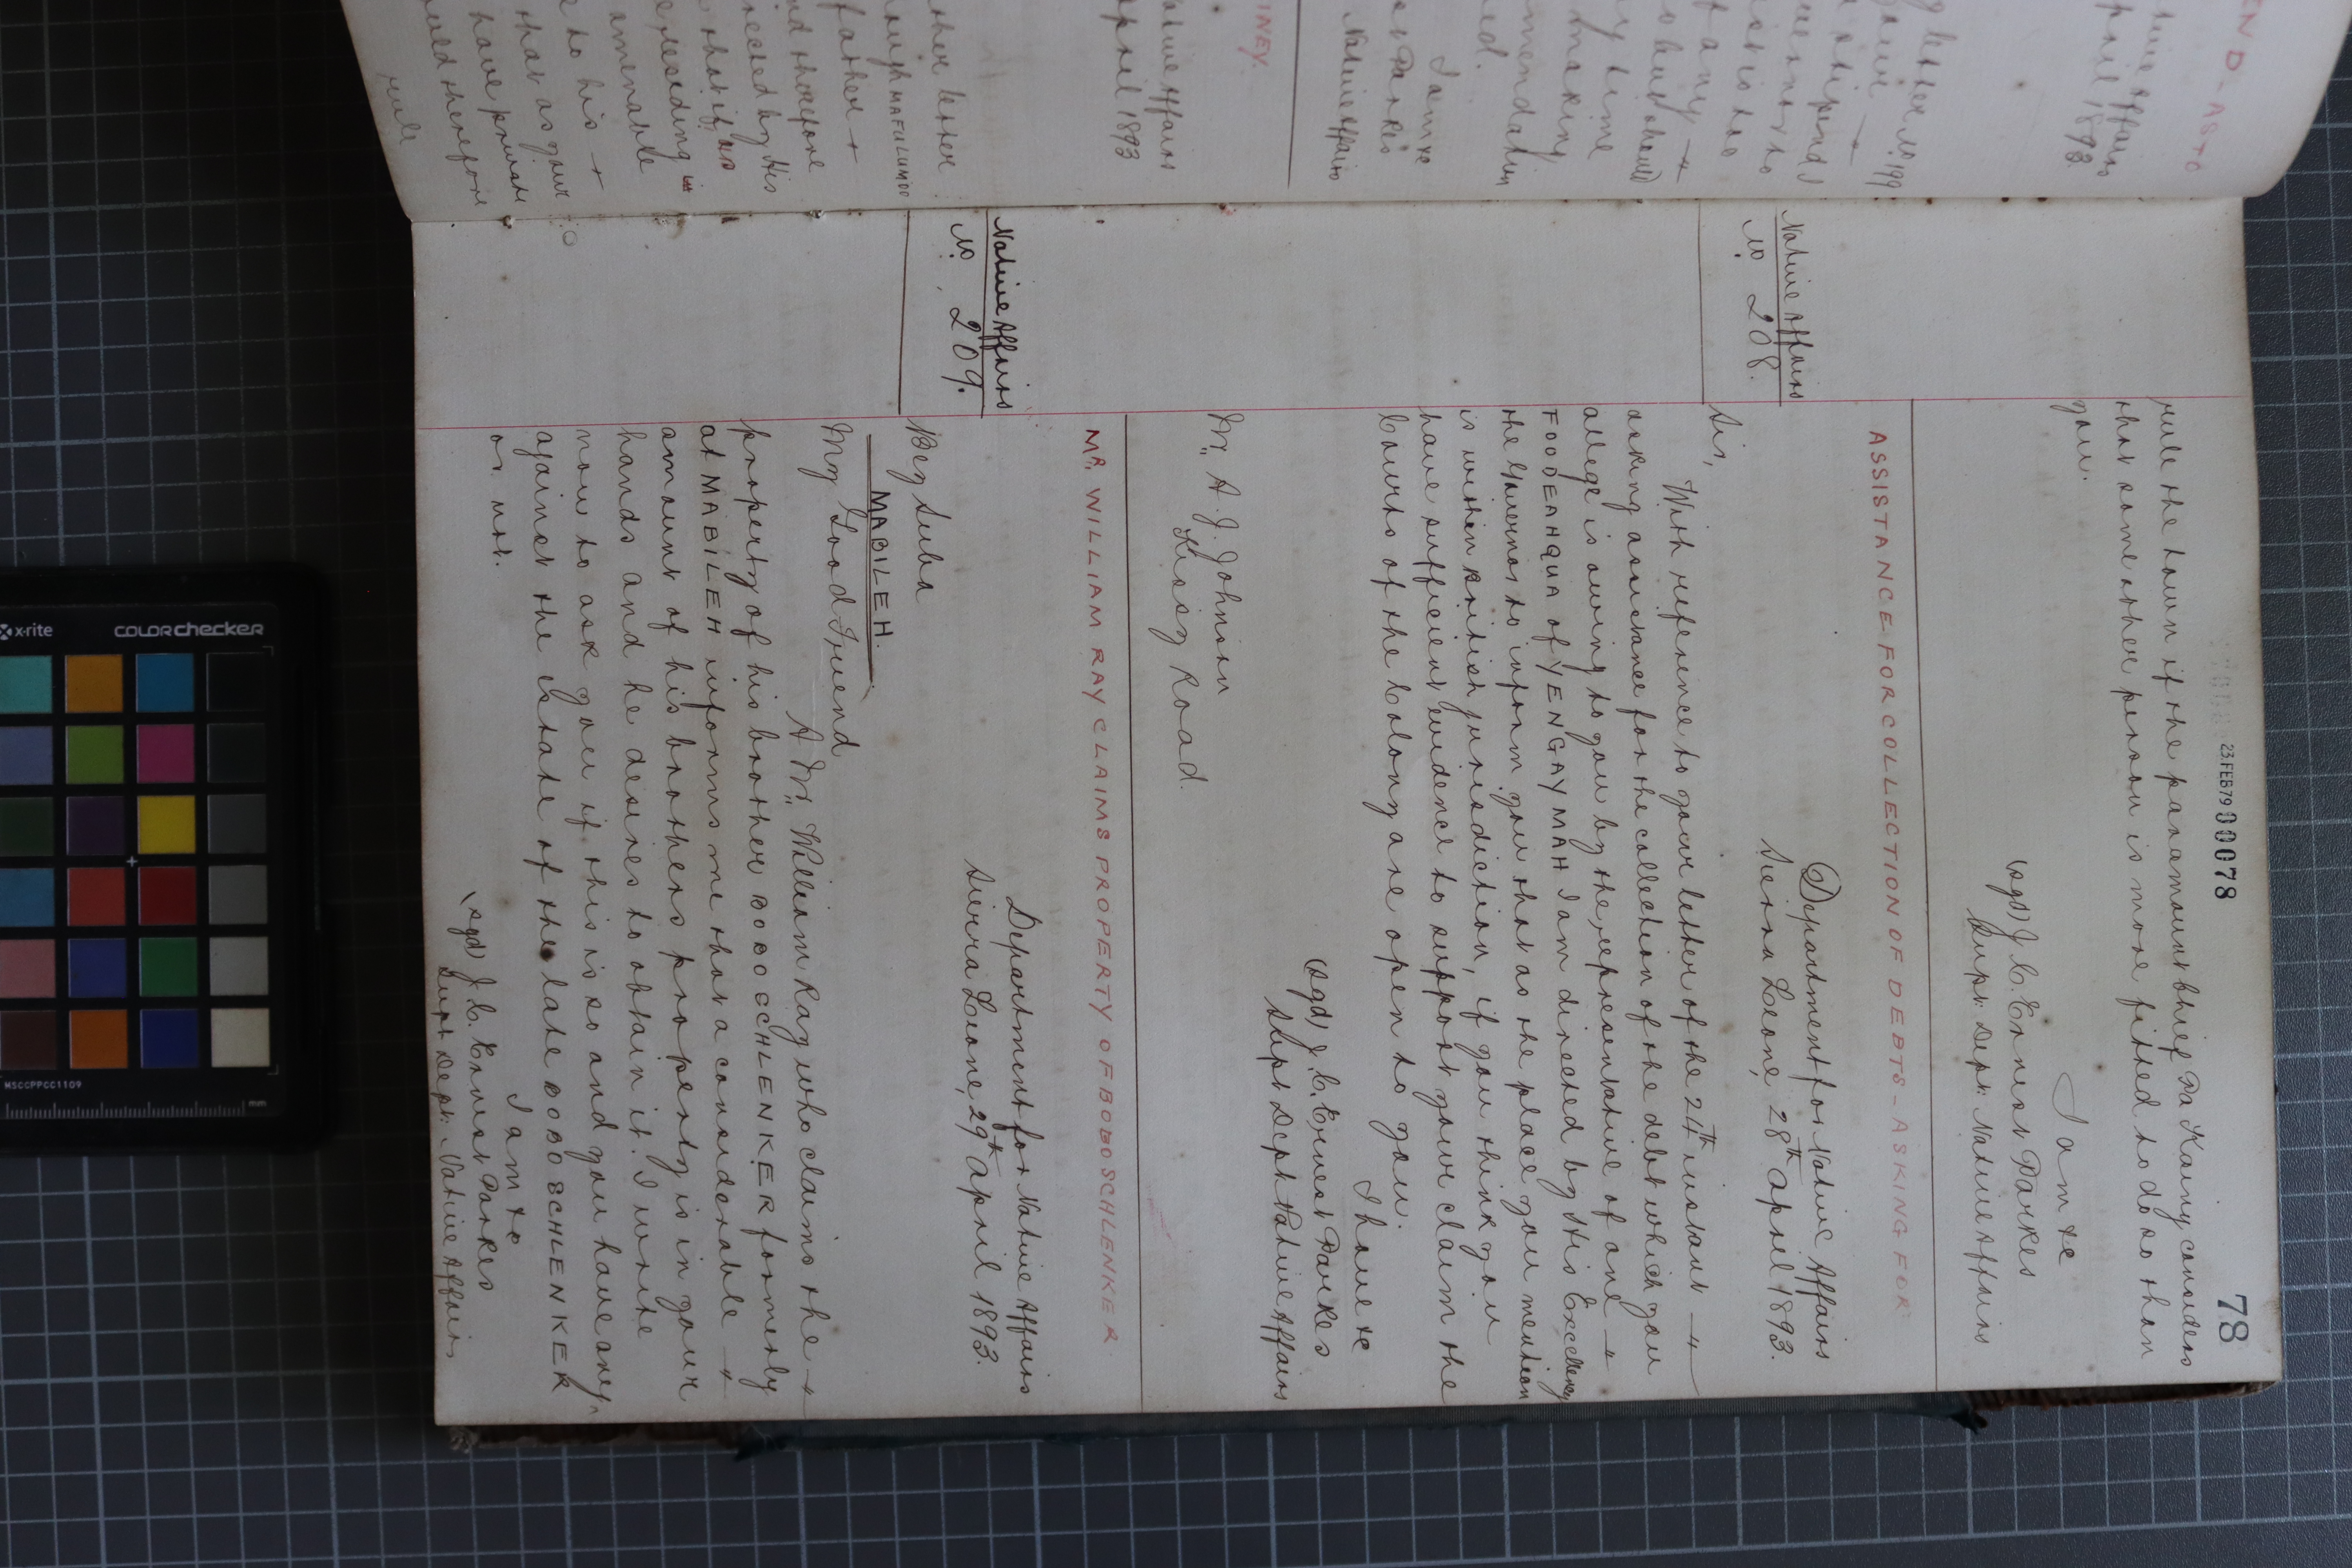 23 FEB 79 00078
78
rule the town if the paramount Chief Pa Kainy considers
that some other person is more fitted to do so than
you.
I am &c
(sgd) J. C. Ernest Parkes
Supt: Dept: Native Affairs
ASSISTANCE FOR COLLECTION OF DEBTS - ASKING FOR
Native Affairs
No. 208.
Department for Native Affairs
Sierra Leone, 28th April 1893.
Sir,
With reference to your letter of the 24th instant
asking assistance for the collection of the debt which you
allege is owing to you by the representative of one
FOODEAHQUA of YENGAYMAH I am directed by His Excellency
the Governor to inform you that as the place you mention
is within British jurisdiction, if you think you
have sufficient evidence to support your claim the
Courts of the Colony are open to you.
I have &c
(sgd) J. C. Ernest Parkes
Supt Dept Native Affairs
Mr. A. J. Johnson
Kissy Road.
MR. WILLIAM RAY CLAIMS PROPERTY OF BOBO SCHLENKER
Native Affairs
No. 209.
Department for Native Affairs
Sierra Leone, 29th April 1893.
Bey Suba
MABILEH.
My Good Friend
A Mr. William Ray who claims the
property of his brother BOBO SCHLENKER formerly
at MABILEH informs me that a considerable
amount of his brothers property is in your
hands and he desires to obtain it. I write
now to ask you if this is so and you have any
against the Estate of the late BOBO SCHLENKER
or not.
I am &c
(sgd) J. C. Ernest Parkes
Supt Dept: Native Affairs
END - AS TO
Native Affairs
April 1893.
g letter No. 199
stipend I
any
time
making
I am &c
Parkes
Native Affairs
INEY.
Native Affairs
April 1893
other letter
MAFULUMOO
father
and therefore
by His
that if
residing
amenable
to his
that as your
have
would therefore
rule
x-rite
COLORchecker
MSCCPPCC1109
mm